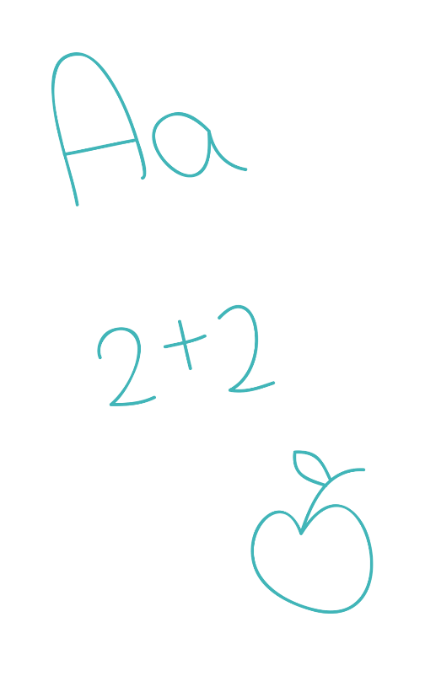 Aa
2+2